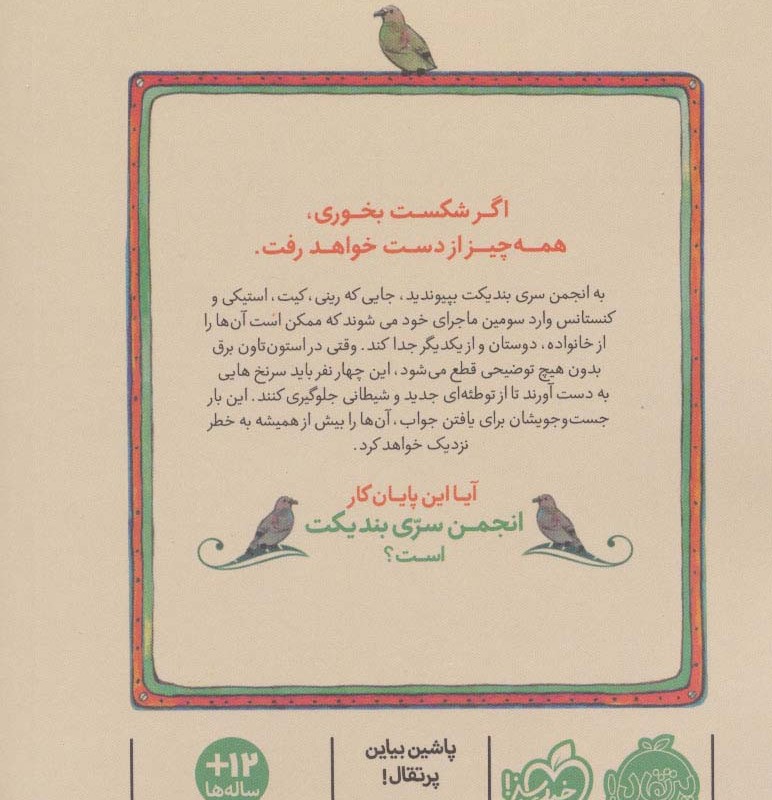 اگر شکست بخوری،
همه‌چیز از دست خواهد رفت.
به انجمن سری بندیکت بپیوندید، جایی که رینی، کیت، استیکی و
کنستانس وارد سومین ماجرای خود می شوند که ممکن است آن‌ها را
از خانواده، دوستان و از یکدیگر جدا کند. وقتی در استون‌تاون برق
بدون هیچ توضیحی قطع می‌شود، این چهار نفر باید سرنخ هایی
به دست آورند تا از توطئه‌ای جدید و شیطانی جلوگیری کنند. این بار
جست‌وجویشان برای یافتن جواب، آن‌ها را بیش از همیشه به خطر
نزدیک خواهد کرد.
آیا این پایان کار
انجمن سرّی بندیکت
است؟
پرتقال!
پاشین بیاین
پرتقال!
+۱۲
ساله‌ها